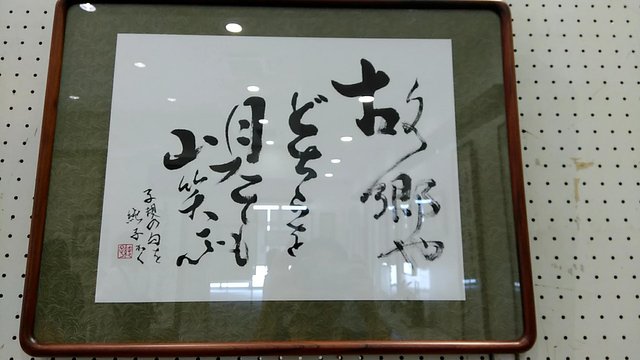 故郷や
どちらを
見ても
山笑ふ
子規の句を
子かく